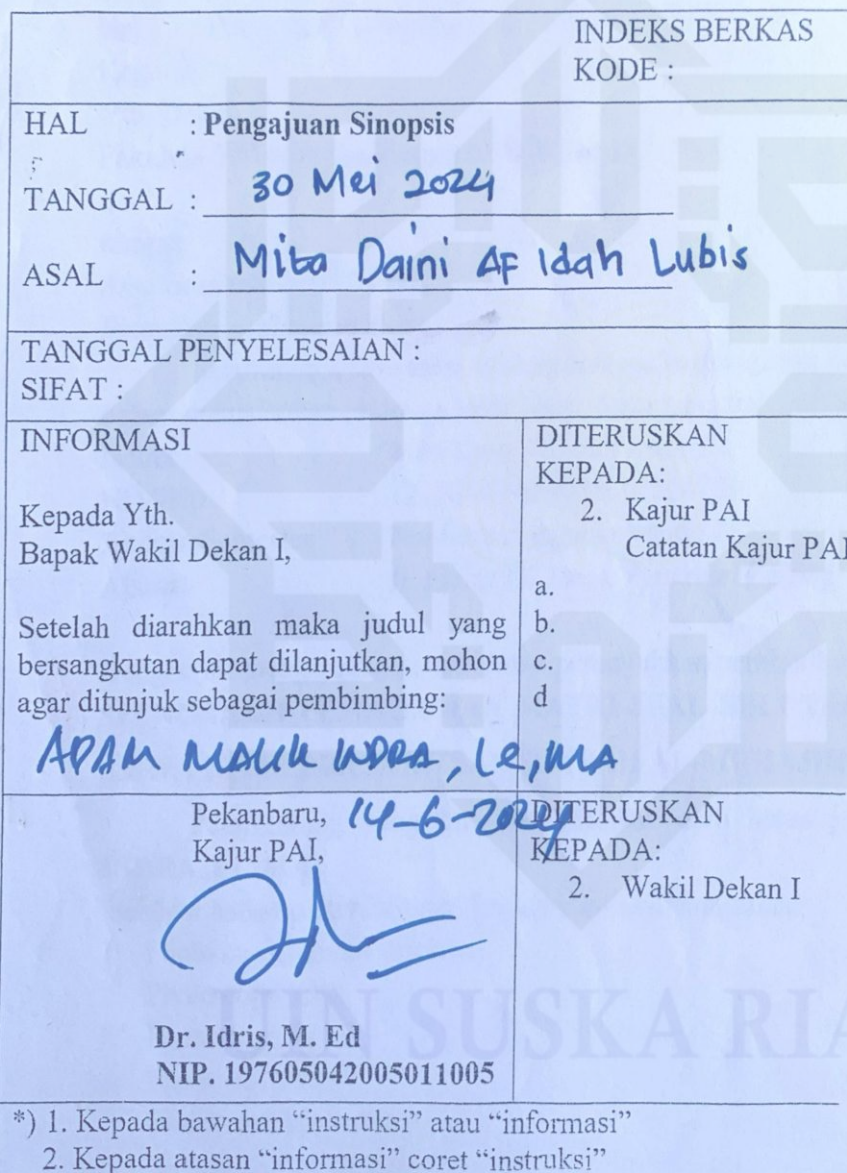 INDEKS BERKAS
KODE :
HAL : Pengajuan Sinopsis
TANGGAL : 30 Mei 2024
ASAL : Mita Daini AF Idah Lubis
TANGGAL PENYELESAIAN :
SIFAT :
INFORMASI
Kepada Yth.
Bapak Wakil Dekan I,
Setelah diarahkan maka judul yang
bersangkutan dapat dilanjutkan, mohon
agar ditunjuk sebagai pembimbing:
ADAM MALIK INDRA, Lc, MA
DITERUSKAN
KEPADA:
2. Kajur PAI
Catatan Kajur PAI
a.
b.
c.
d
Pekanbaru, 14-6-2024
Kajur PAI,
Dr. Idris, M. Ed
NIP. 197605042005011005
DITERUSKAN
KEPADA:
2. Wakil Dekan I
UIN SUSKA RIA
*) 1. Kepada bawahan “instruksi” atau “informasi”
2. Kepada atasan “informasi” coret “instruksi”